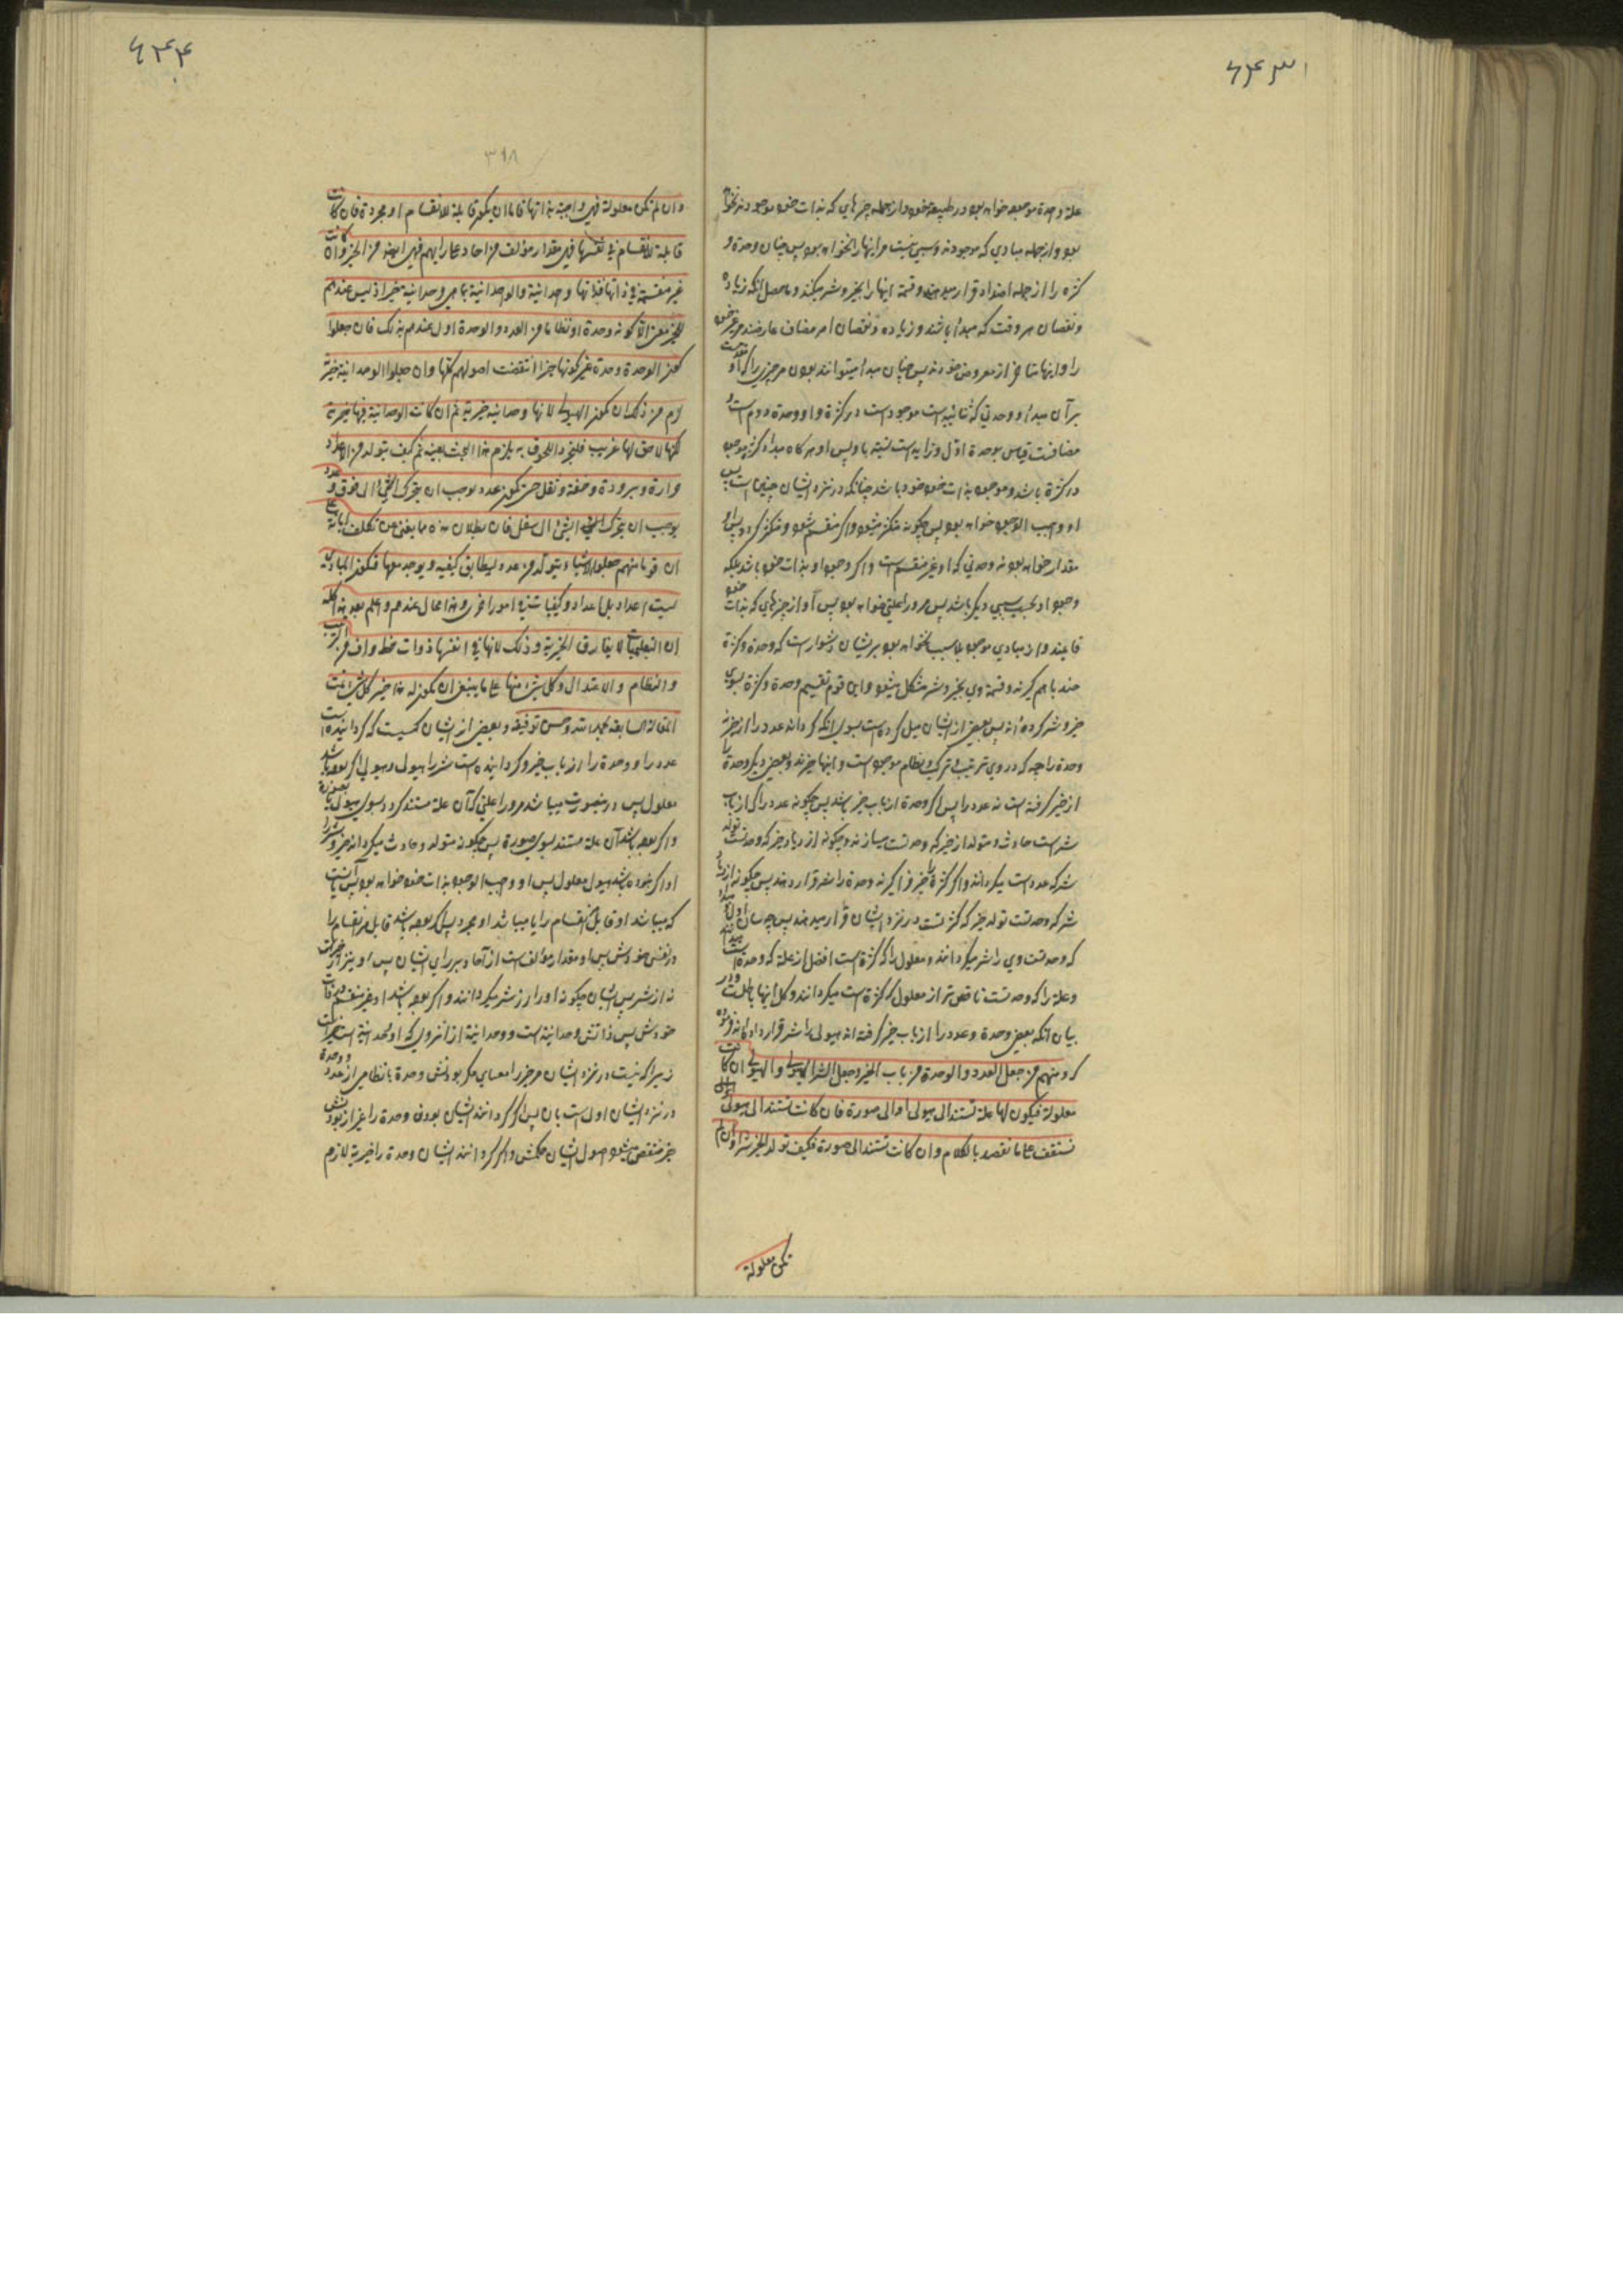 ۶۴۳
علة وحدة موجود خواهد بود در طبیعة خود و از جمله چیزهای که بذات خود موجودند نخواهد
بود و از جمله مبادی که موجودند و سببی نیست مر اینها را نخواهد بود پس چنان وحدة و
کثرة را از جمله اضداد قرار میدهند و قسمة اینها را بخیر و شر میکنند و حاصل آنکه زیاده
و نقصان هر وقت که مبدأ باشند و زیاده و نقصان امر مضاف عارضند مر غیر خود
را و اینها متأخر از معروض خودند پس چنان مبدأ میتوانند بودن مر چیزی را که او مقدمست
بر آن مبدأ و وحدتی که ثنائیه است موجود است در کثرة و او وحدة دوم است و
مضافست بقیاس بوحدة اول و تراید است نسبة باو پس او هر کاه مبداء کثرة موجود
در کثرة باشد و موجود بذات خود خود باشد چنانکه در نزد ایشان چنین است پس
او واجب الوجود خواهد بود پس چکونه متکثر میشود و اکر منقسم شود و متکثر کردد پس او
مقدار خواهد بود نه وحدتی که او غیر منقسم است و اکر وجود او بذات خود باشد بلکه
وجود او بحسب سببی دیکر باشد پس مر او را علتی خواهد بود پس او از چیزهای که بذات خود
قایمند و از مبادی موجود بلا سبب نخواهد بود بر ایشان دشوار است که وحدة و کثرة
ضد باهم کیرند و قسمة وی بخیر و شر مشکل میشود و این قوم تقسیم وحدة و کثرة بسوی
خیر و شر کرده اند پس بعضی از ایشان میل کرده است بسوی آنکه کردانه عدد را از خیر نه
وحدة را چه که در وی ترتیب و ترکیب و نظام موجود است و اینها خیرند و بعضی دیکر وحدة را
از خیر کرفته است نه عدد را پس اکر وحدة از باب خیر باشد پس چکونه عدد را که از باب
شر است حادث و متولد از خیر که وحدتست میسازند و چکونه ازدیاد خیر که وحدتست تولد
شر که عدد است میکرداند و اکر کثرة را خیر فرا کیرند و وحدة را شر قرار دهند پس چکونه ازدیاد
شر که وحدتست تولد خیر که کثرتست در نزد ایشان قرار میدهند پس چه سان اول مبدأ
که وحدتست وی را شر میکردانند و معلول را که کثرة است افضل از علة که وحدة است
و علة را که وحدتست ناقص تر از معلول که کثرة است میکردانند و کل اینها باطلست و در
بیان آنکه بعضی وحدة و عدد را از باب خیر کرفته اند هیولی را شر قرار داده اند فرموده
که و منهم من جعل العدد و الوحدة من باب الخیر و جعل الشر الهیولی و الهیولی ان کانت
معلولة فیکون لها علة تستند الی هیولی او الی صورة فان کانت تستند الی هیولی
نستقف علی ما نقصد بالکلام و ان کانت تستند الی صورة فکیف تولد الخیر شرا و ان لم
تکن معلولة
۶۴۴
۳۱۸
و ان لم تکن معلولة فهی واجبة بذاتها فاما ان یکون قابلة للانقسام او مجردة فان کانت
قابلة للانقسام فی نفسها فهی مقدار مؤلف من احاد علی رایهم فهی ایضا من الخیر و ان کانت
غیر منقسمة فی ذاتها فذاتها وحدانیة و الوحدانیة بما هی وحدانیة خیر اذ لیس عندهم
للخیر معنی الا کونه وحدة او نظاما من العدد و الوحدة اولی عندهم بذلک فان جعلوا
کون الوحدة وحدة غیر کونها خیرا انتقضت اصولهم کلها و ان جعلوا الوحدانیة خیریة
لزم من ذلک ان تکون الهیولی لانها وحدانیة خیریة ثم ان کانت الوحدانیة فیها خیریة
لکنها لاحق لها غریب فلیتجرد اللحوق به یلزم هذا البحث بعینه ثم کیف یتولد من الاعداد
حرارة و برودة و خفة و ثقل حتی یکون عدد یوجب ان یتحرک الشیء الی فوق و عدد
یوجب ان یتحرک الشیء الی اسفل فان بطلان هذا مما یغنی عن تکلف ابانة علی
ان قوما منهم جعلوا الاشیاء یتولد من عدد لیطابق کیفیة و یوجد معها فتکون المبادی
لیست اعداد بل اعداد و کیفیات و امورا اخری و هذا محال عندهم و اعلم بعد هذا کله
ان التعلیمیات لا یفارق الخیریة و ذلک لانها فی انفسها ذوات حظ وافر من الترتیب
و النظام و الاعتدال و کل شیء منها علی ما ینبغی ان یکون له هذا خیر کل شیء تمت
المقالة السابعة بحمد الله و حسن توفیقه و بعضی از ایشان کسیست که کردانیده است
عدد را و وحدة را از باب خیر و کردانیده است شر را هیولی و هیولی اکر بوده باشد
معلول پس درینصورت میباشد مر او را علتی که آن علة مستند کردد بسوی هیولی یا بصورة
و اکر بوده باشد آن علة مستند بسوی صورة پس چکونه متولد و حادث میکرداند خیر و شر را
و اکر نبوده باشد هیولی معلول پس او واجب الوجود بذات خود خواهد بود پس یا آنست
که میباشد او قابل انقسام را یا میباشد او مجرد پس اکر بوده باشد قابل مر انقسام را
در نفس خودش پس او مقدار مؤلفست از آحاد بر رای ایشان پس او نیز از خیراتست
نه از شر پس ایشان چکونه او را از شر میکردانند و اکر بوده باشد او غیر منقسم در ذات
خودش پس ذاتش وحدانیة است و وحدانیة از آنروی که او وحدانیة است خیر است
زیرا که نیست در نزد ایشان مر خیر را معنایی مکر بودنش وحدة یا نظامی از عدد و وحدة
در نزد ایشان اولی است بآن پس اکر کردانند ایشان بودن وحدة را غیر از بودنش
خیر منتقض میشود اصول ایشان همکیش و اکر کردانند ایشان وحدة را خیریة لازم